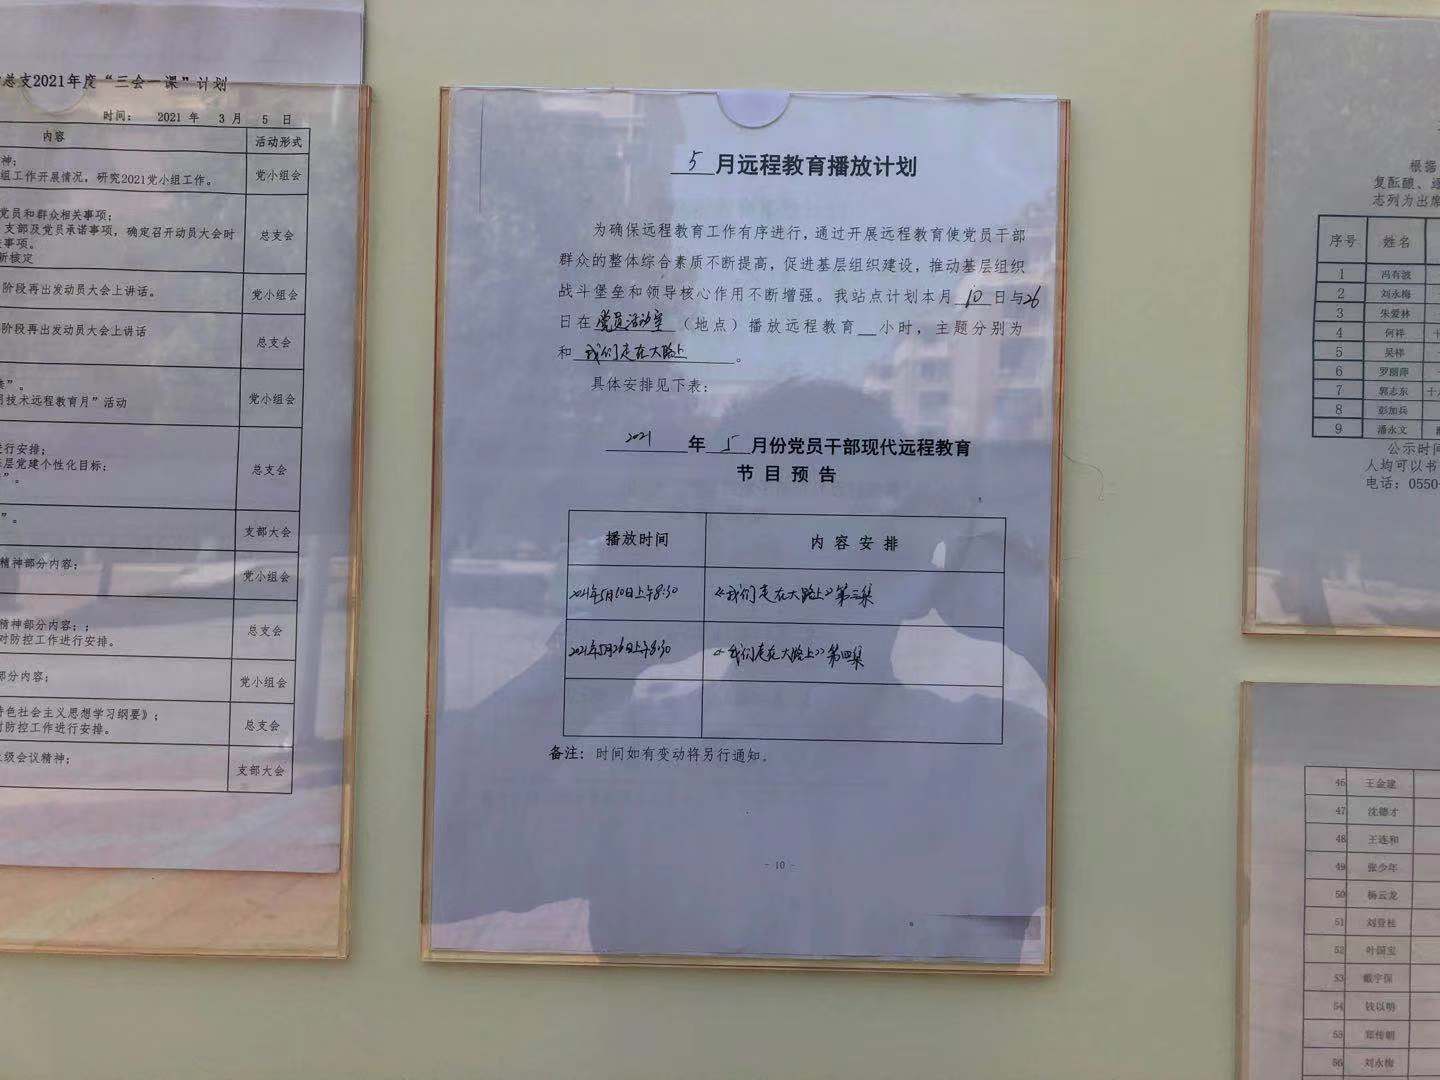 总支2021年度“三会一课”计划
时间： 2021 年 3 月 5 日
内容 活动形式
神；
组工作开展情况，研究2021党小组工作。 党小组会
党员和群众相关事项；
支部及党员承诺事项，确定召开动员大会时 总支会
事项。
新核定
阶段再出发动员大会上讲话。 党小组会
阶段再出发动员大会上讲话 总支会
”。
技术远程教育月”活动 党小组会
进行安排；
层党建个性化目标； 总支会
”。
”。 支部大会
精神部分内容； 党小组会
精神部分内容；；
对防控工作进行安排。 总支会
部分内容； 党小组会
特色社会主义思想学习纲要》；
对防控工作进行安排。 总支会
级会议精神； 支部大会
5 月远程教育播放计划
为确保远程教育工作有序进行，通过开展远程教育使党员干部
群众的整体综合素质不断提高，促进基层组织建设，推动基层组织
战斗堡垒和领导核心作用不断增强。我站点计划本月 10 日与26
日在 党员活动室 （地点）播放远程教育 小时，主题分别为
和 我们走在大路上 。
具体安排见下表：
2021 年 5 月份党员干部现代远程教育
节目预告
播放时间 内容安排
2021年5月10日上午8:30 《我们走在大路上》第三集
2021年5月26日上午8:30 《我们走在大路上》第四集
备注：时间如有变动将另行通知。
- 10 -
根据
志列为出席
序号 姓名
1 冯有波
2 刘永梅
3 朱爱林
4 何祥
5 吴梓
6 罗丽萍
7 郭志东
8 彭加兵
9 潘永文
公示时间
人均可以书
电话：0550-
46 王金建
47 沈德才
48 王连和
49 张少年
50 杨云龙
51 刘登柱
52 叶国宝
53 戴宇保
54 钱以明
55 郑传朝
56 刘永梅